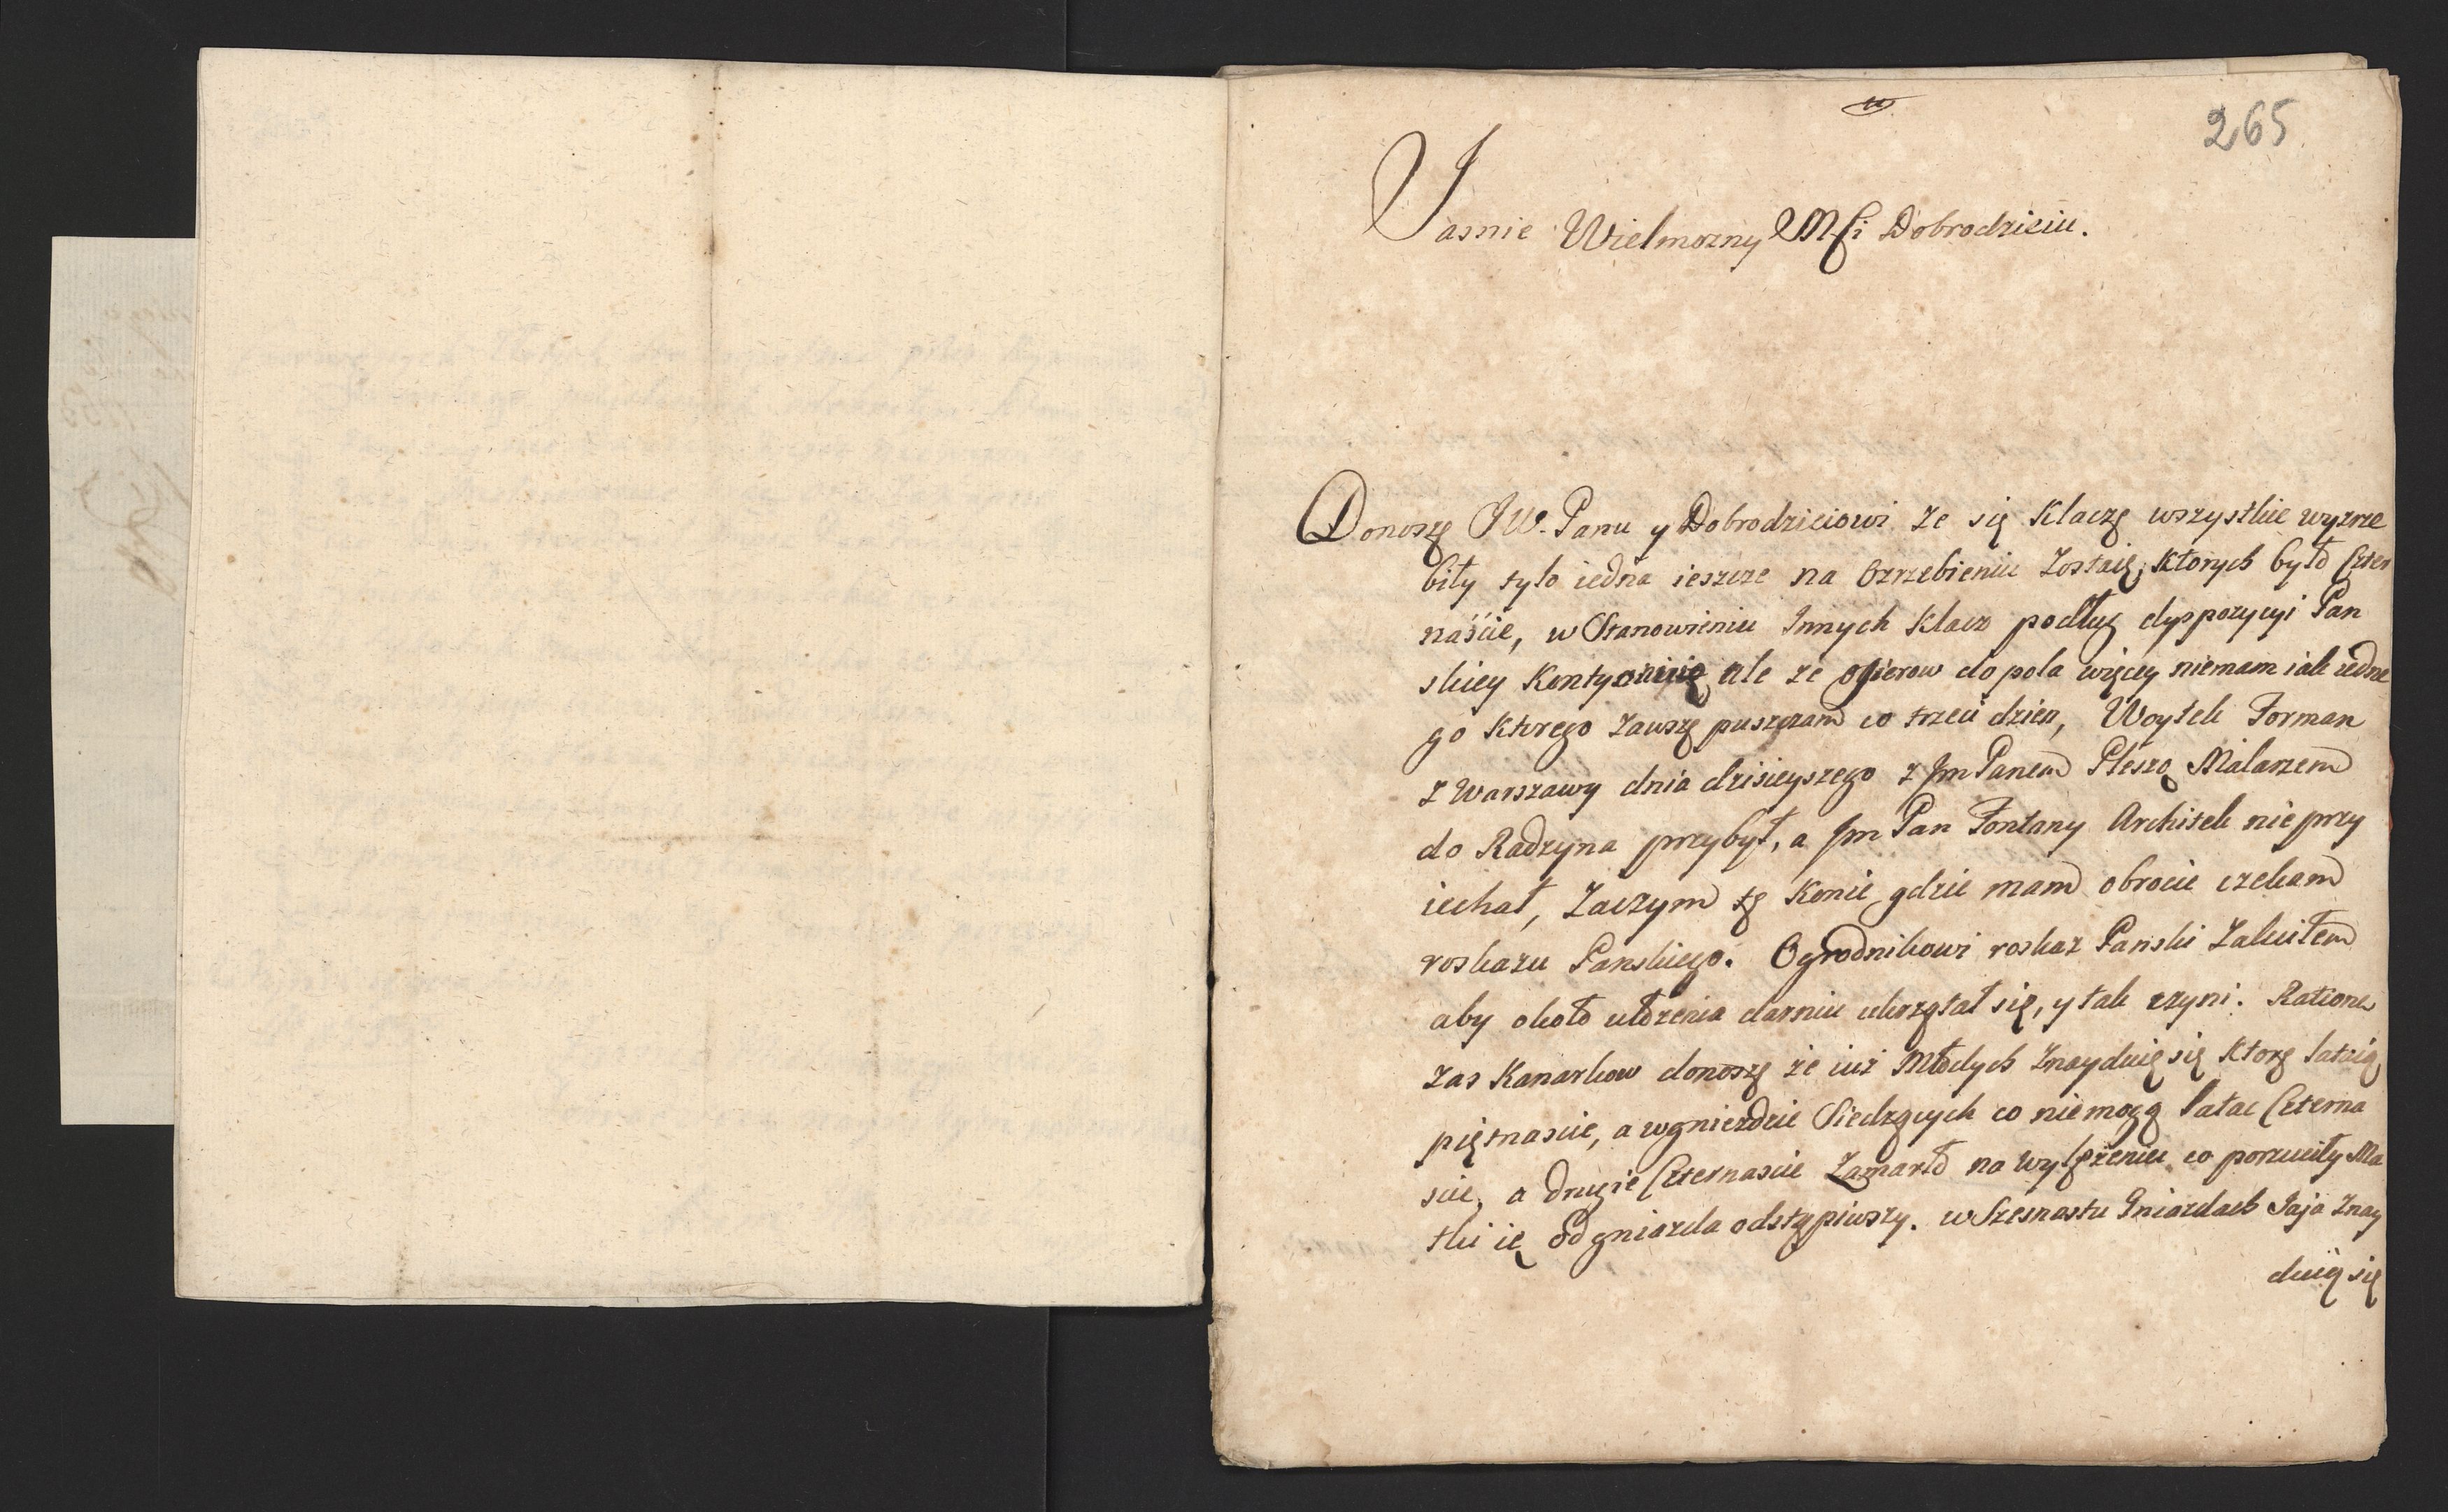 265
Jasnie Wielmozny Mści Dobrodzieiu.
Donoszę JW. Panu y Dobrodzieiowi ze się Klaczę wszystkie wyzrze
biły tylo iedna ieszcze na Ozrzebieniu Zostaię, Ktorych było Czter
naście, w Stanowieniu Innych Klacz podług dyspozycyi Pan
skiey Kontynuię ale ze ogierow do pola więcy niemam iak iedne
go Ktorego zawszę puszczam co trzeci dzien, Woytek Forman
z Warszawy dnia dzisieyszego z Jm Panem Pleszą Malarzem
do Radzyna przybył, a Jm Pan Fontany Architek nie przy
iechał, Zaczym tę Konie gdzie mam obrocie czekam
roskazu Panskiego. Ogrodnikowi roskaz Panski Zaleciłem
aby około ułozenia darniu ukrzątał się, y tak czyni. Ratione
zas Kanarkow donoszę że iuż Młodych Znayduię się Ktorę lataią
piętnascie, a wgniezdzie Siedzących co niemogą latac Czterna
scie, a drugie Czternascie Zamarło na wylężeniu co porzuciły Ma
tki ię Od gniazda odstąpiwszy. w Szesnastu Gniazdach Jaja Znay
duią się